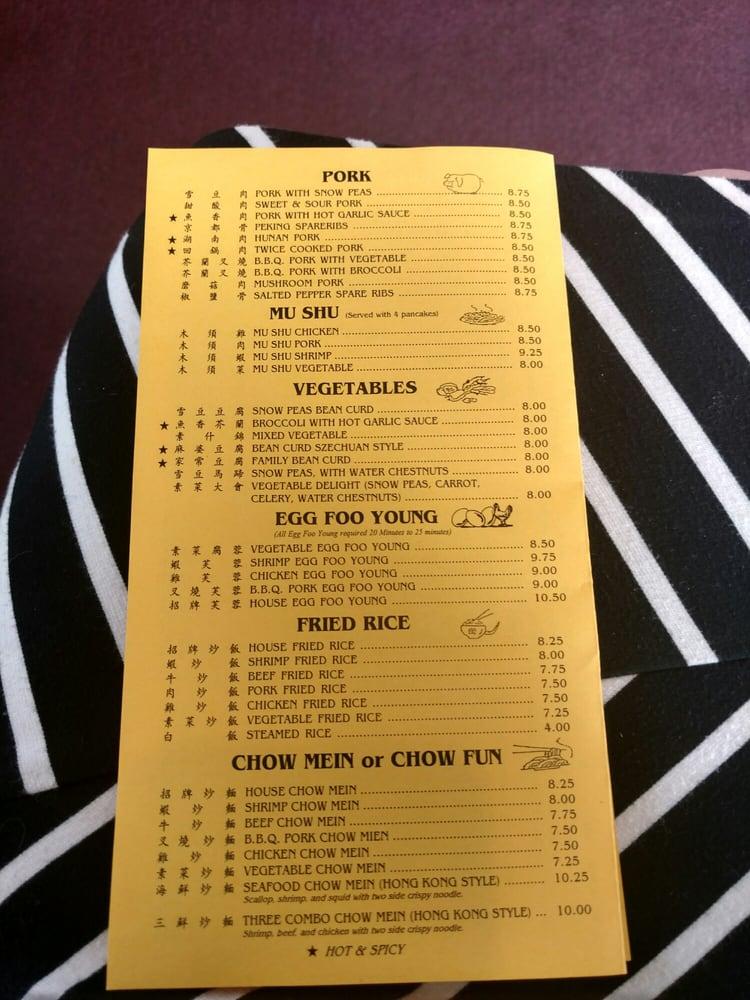 PORK
雪豆肉 PORK WITH SNOW PEAS 8.75
甜酸肉 SWEET & SOUR PORK 8.50
★ 魚香肉 PORK WITH HOT GARLIC SAUCE 8.50
京都骨 PEKING SPARERIBS 8.75
★ 湖南肉 HUNAN PORK 8.75
★ 回鍋肉 TWICE COOKED PORK 8.50
芥蘭叉燒 B.B.Q. PORK WITH VEGETABLE 8.50
芥蘭叉燒 B.B.Q. PORK WITH BROCCOLI 8.50
蘑菇肉 MUSHROOM PORK 8.50
椒鹽骨 SALTED PEPPER SPARE RIBS 8.75
MU SHU (Served with 4 pancakes)
木須雞 MU SHU CHICKEN 8.50
木須肉 MU SHU PORK 8.50
木須蝦 MU SHU SHRIMP 9.25
木須菜 MU SHU VEGETABLE 8.00
VEGETABLES
雪豆豆腐 SNOW PEAS BEAN CURD 8.00
★ 魚香芥蘭 BROCCOLI WITH HOT GARLIC SAUCE 8.00
素什錦 MIXED VEGETABLE 8.00
★ 麻婆豆腐 BEAN CURD SZECHUAN STYLE 8.00
★ 家常豆腐 FAMILY BEAN CURD 8.00
雪豆馬蹄 SNOW PEAS, WITH WATER CHESTNUTS 8.00
素菜大會 VEGETABLE DELIGHT (SNOW PEAS, CARROT,
CELERY, WATER CHESTNUTS) 8.00
EGG FOO YOUNG
(All Egg Foo Young required 20 Minutes to 25 minutes)
素菜腐蓉 VEGETABLE EGG FOO YOUNG 8.50
蝦芙蓉 SHRIMP EGG FOO YOUNG 9.75
雞芙蓉 CHICKEN EGG FOO YOUNG 9.00
叉燒芙蓉 B.B.Q. PORK EGG FOO YOUNG 9.00
招牌芙蓉 HOUSE EGG FOO YOUNG 10.50
FRIED RICE
招牌炒飯 HOUSE FRIED RICE 8.25
蝦炒飯 SHRIMP FRIED RICE 8.00
牛炒飯 BEEF FRIED RICE 7.75
肉炒飯 PORK FRIED RICE 7.50
雞炒飯 CHICKEN FRIED RICE 7.50
素菜炒飯 VEGETABLE FRIED RICE 7.25
白飯 STEAMED RICE 4.00
CHOW MEIN or CHOW FUN
招牌炒麵 HOUSE CHOW MEIN 8.25
蝦炒麵 SHRIMP CHOW MEIN 8.00
牛炒麵 BEEF CHOW MEIN 7.75
叉燒炒麵 B.B.Q. PORK CHOW MIEN 7.50
雞炒麵 CHICKEN CHOW MEIN 7.50
素菜炒麵 VEGETABLE CHOW MEIN 7.25
海鮮炒麵 SEAFOOD CHOW MEIN (HONG KONG STYLE) 10.25
Scallop, shrimp, and squid with two side crispy noodle.
三鮮炒麵 THREE COMBO CHOW MEIN (HONG KONG STYLE) 10.00
Shrimp, beef, and chicken with two side crispy noodle.
★ HOT & SPICY